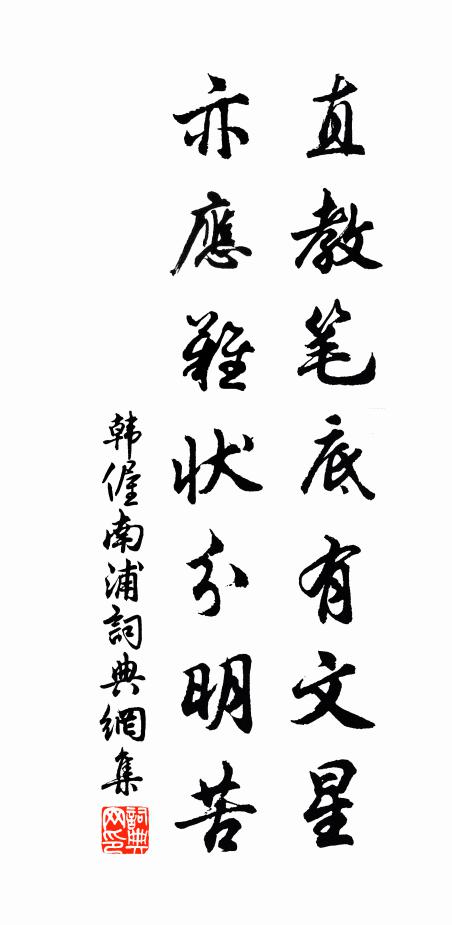 直教笔底有文星
亦應難狀分明苦
韩偓南浦詞典網集
詞典网印